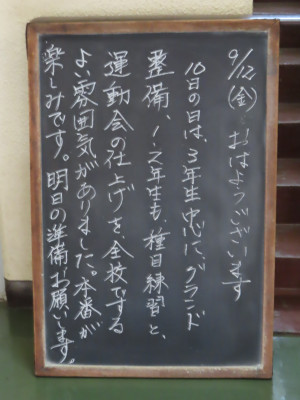 9/12(金) おはようございます
10日の日は、3年生中心に、グランド
整備、1・2年生も、種目練習と、
運動会の仕上げを、全校でする
よい雰囲気がありました。本番が
楽しみです。明日の準備、お願いします。